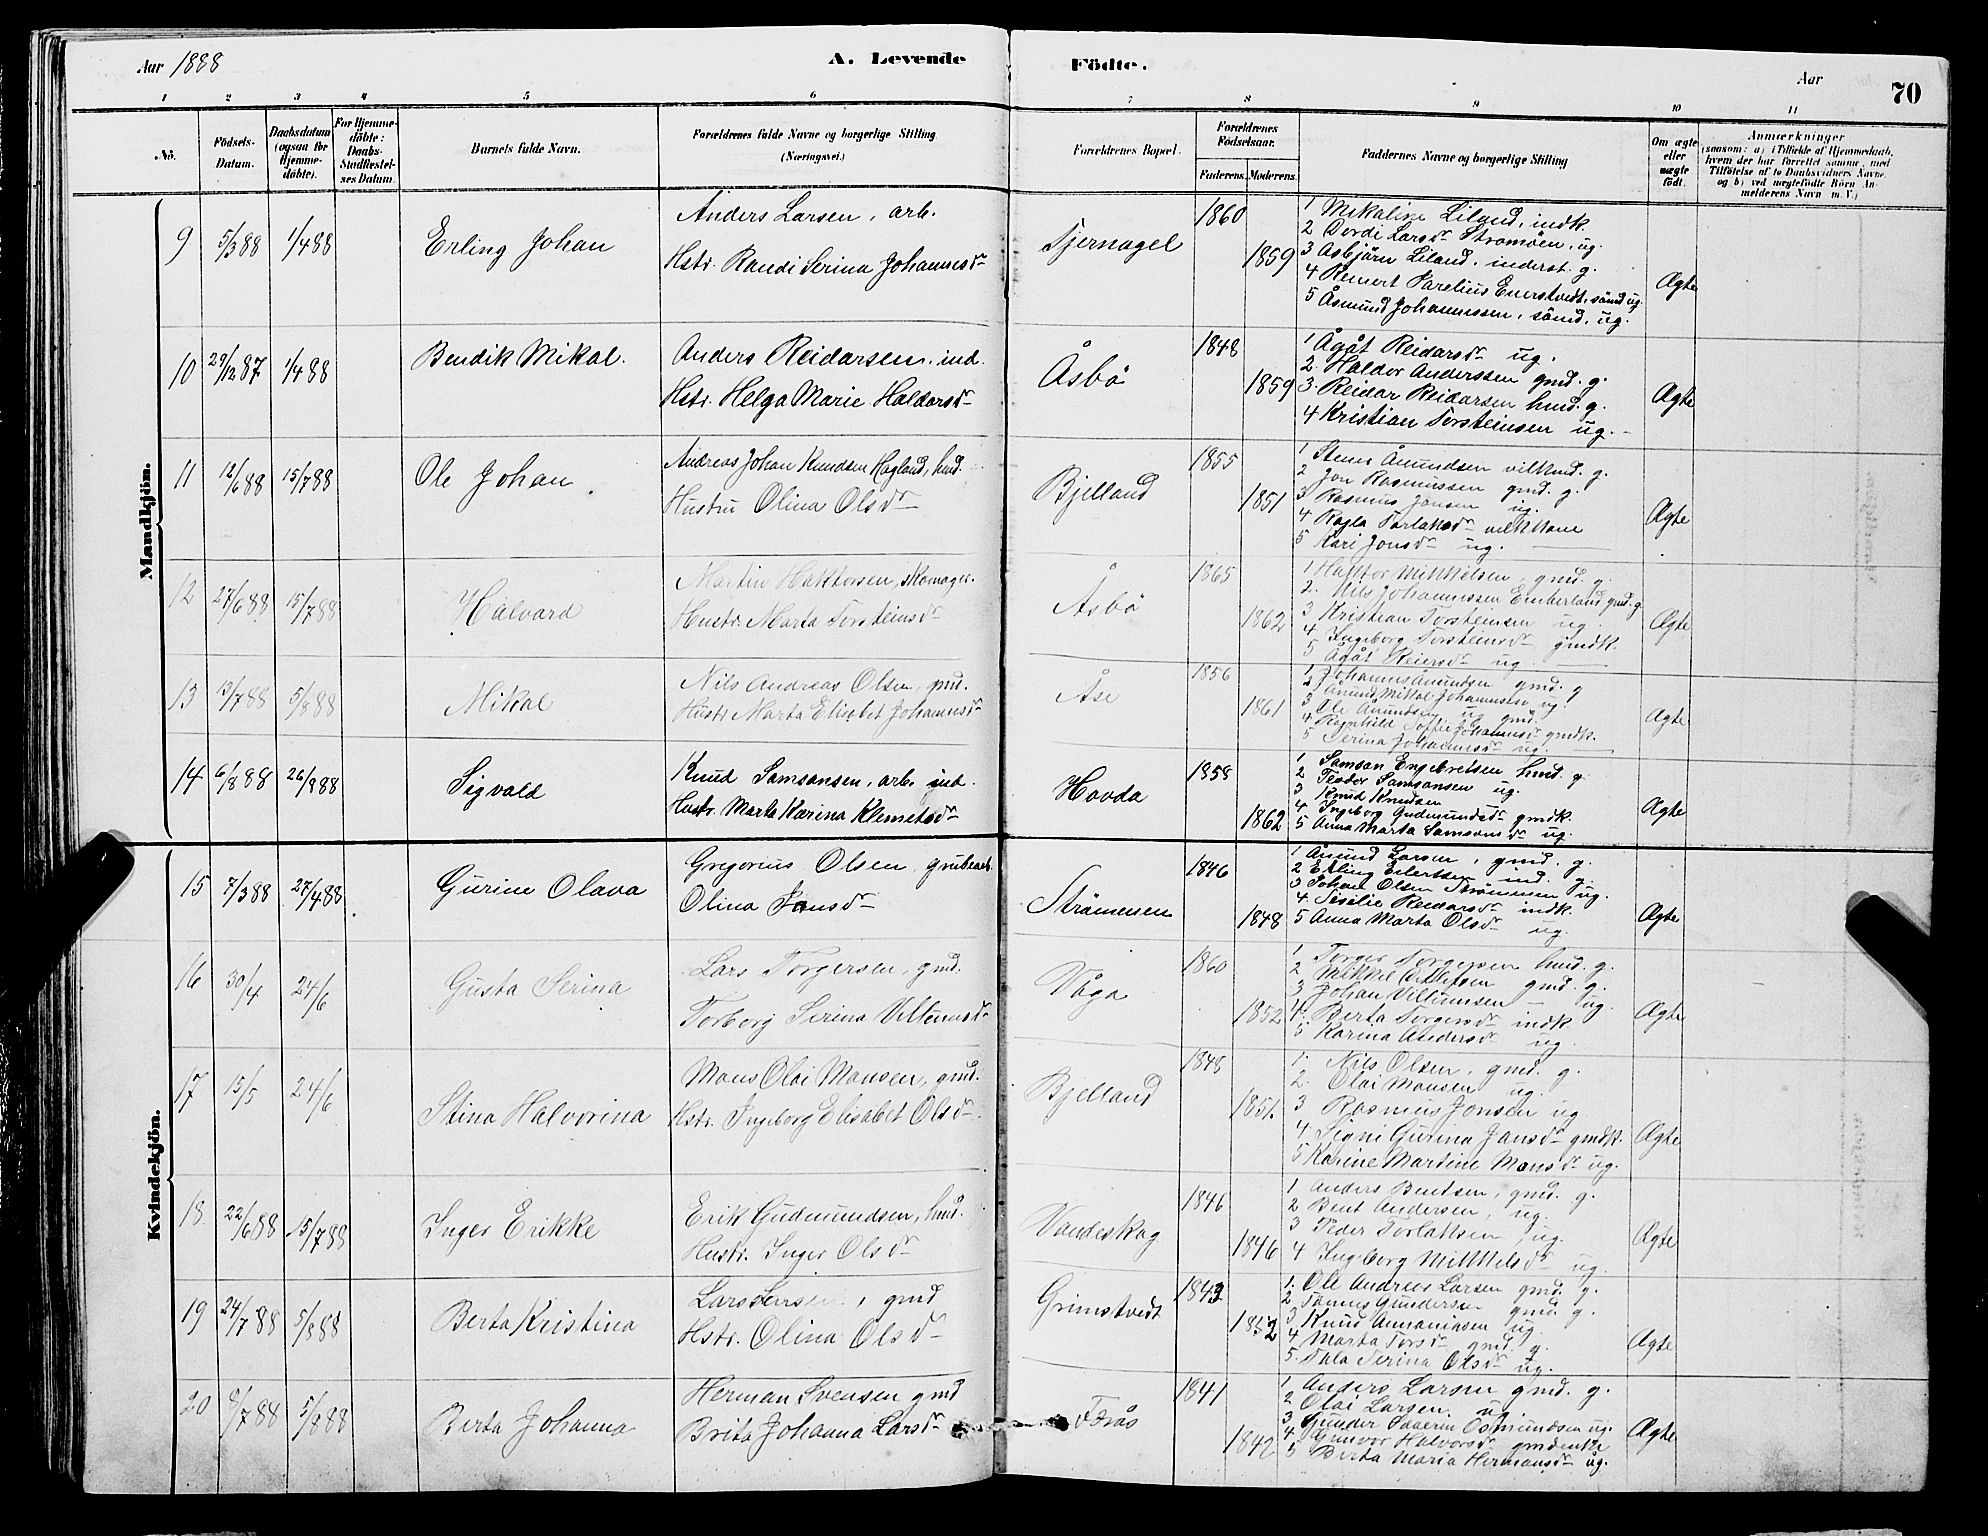 Aar 1888
A. Levende
Födte.
Aar
70
1 2 3 4 5 6 7 8 9 10 11
No.
Födsels-Datum.
Daabsdatum (ogsaa for Hjemme-döbte).
For Hjemme-döbte: Daabs-Stadfæstel-ses Datum.
Barnets fulde Navn.
Forældrenes fulde Navne og borgerlige Stilling (Næringsvei.)
Forældrenes Bopæl.
Forældrenes Födselsaar.
Faderens. Moderens.
Faddernes Navne og borgerlige Stilling
Om ægte eller uægte födt.
Anmærkninger
(saasom: a) i Tilfælde af Hjemmedaab, hvem der har forrettet samme, med Tilföielse af to Daabsvidners Navne, og b) ved uægtefödte Börn An-melderens Navn m. V.)
Mandkjön.
9 5/3 88 1/4 88 Erling Johan
Anders Larsen, arb.
Hstr. Randi Serina Johannesdr
Tjernagel 1860 1859
1 Mikaline Liland, indk.
2 Dordi Larsdr Strømøen, ug.
3 Asbjørn Liland, inderst. g.
4 Reinert Parelius Enerstvedt, sømd ug.
5 Åsmund Johannessen, sømd, ug.
Ægte
10 29/12 87 1/4 88 Bendik Mikal.
Anders Reidarsen, ind.
Hstr. Helga Marie Haldorsdr
Åsbö 1848 1859
1 Ågåt Reidarsdr ug.
2. Haldor Anderssen gmd. g.
3. Reidar Reidarsen hmd. g.
4 Kristian Torsteinsen ug.
Ægte
11 12/6 88 15/7 88 Ole Johan
Andreas Johan Knudsen Hagland, hmd.
Hustru Olina Olsdr
Bjelland 1855 1851
1 Stener Åmundsen vilkmd. g.
2 Jon Rasmussen gmd. g.
3 Rasmus Jonsen ug.
4 Ragla Torlaksdr vilkkone
5 Kari Jonsdr ug.
Ægte
12 27/6 88 15/7 88 Halvard
Martin Haktorsen, skomager.
Hustr. Marta Torsteinsdr
Åsbö 1865 1862
1 Haktor Mikkelsen, gmd. g.
2. Nils Johannessen Emberland gmd. g.
3 Kristian Torsteinsen ug.
4 Ingeborg Torsteinsdr gmdk.
5 Ågåt Reiersdr ug.
Ægte
13 13/7 88 5/8 88 Mikal
Nils Andreas Olsen, gmd.
Hustr. Marta Elisabet Johannesdr
Åse 1856 1861
1 Johannes Åmundsen gmd. g
2 Åmund Mikal Johannessen ug.
3 Ole Åmundsen ug gmd.
4 Ragnhild Soffie Johannesdr gmdk.
5 Serina Johannesdr ug.
Ægte
14 6/8 88 26/8 88 Sigvald
Knud Samsonsen, arb. ind.
Hustr. Marta Karina Klemetsdr
Hovda 1858 1862
1 Samson Engebretsen hmd. g.
2 Teodor Samsonsen ug.
3 Knud Knudsen
4 Ingeborg Gudmundsdr gmdk.
5 Anna Marta Samsonsdr ug.
Ægte
Kvindekjön.
15 7/3 88 27/4 88 Gurine Olava
Gregorius Olsen, grubearb.
Olina Jansdr
Strømmen 1846 1848
1 Åmund Larsen, gmd. g.
2 Elling Eilertsen ind. g.
3 Johan Olsen Strømmen ug.
4 Sesilie Reidarsdr indk.
5 Anna Marta Olsdr ug.
Ægte
16 30/4 24/6 Gusta Serina
Lars Torgersen, gmd.
Torborg Serina Viltumsdr
Våga 1860 1852
1. Torger Torgersen hmd. g.
2 Mikkel Ditlefsen gmd. g.
3 Johan Viltumsen ug.
4. Berta Torgersdr indk.
5 Karina Andersdr ug.
Ægte
17 15/5 24/6 Stina Halvorina
Mons Olai Monsen, gmd.
Hstr. Ingeborg Elisabet Olsdr.
Bjelland 1848 1851.
1. Nils Olsen, gmd. g.
2. Olai Monsen ug.
3 Rasmus Jonsen ug.
4. Signi Gurina Jansdr gmdk.
5 Karine Martine Monsdr ug.
Ægte
18. 22/6 88 15/7 88 Inger Erikke
Erik Gudmundsen, hmd.
Hustr. Inger Olsdr
Vandeskog 1846 1846
1 Anders Bentsen, gmd. g.
2 Bent Andersen, ug.
3 Peder Torlaksen, ug.
4 Ingeborg Mikkelsdr ug.
Ægte
19 24/7 88 5/8 88 Berta Kristina
Lars Jensen, gmd
Hstr. Olina Olsdr
Grimstvedt 1843 1852
1. Ole Andreas Larsen gmd. g.
2 Tønnes Gundersen gmd. g.
3 Knud Annaniasen ug.
4 Marta Torsdr gmd. g.
5. Tala Serina Olsdr ug.
Ægte
20 9/7 88 5/8 88 Berta Johanna
Herman Svensen gmd
Brita Johanna Larsdr
Førås 1841 1842
1. Anders Larsen gmd. g.
2 Olai Larsen, ug
3. Gunder Saverin Osmundsen ug.
4. Gunvor Halvorsdr gmdenke
5 Berta Maria Hermansdr ug.
Ægte